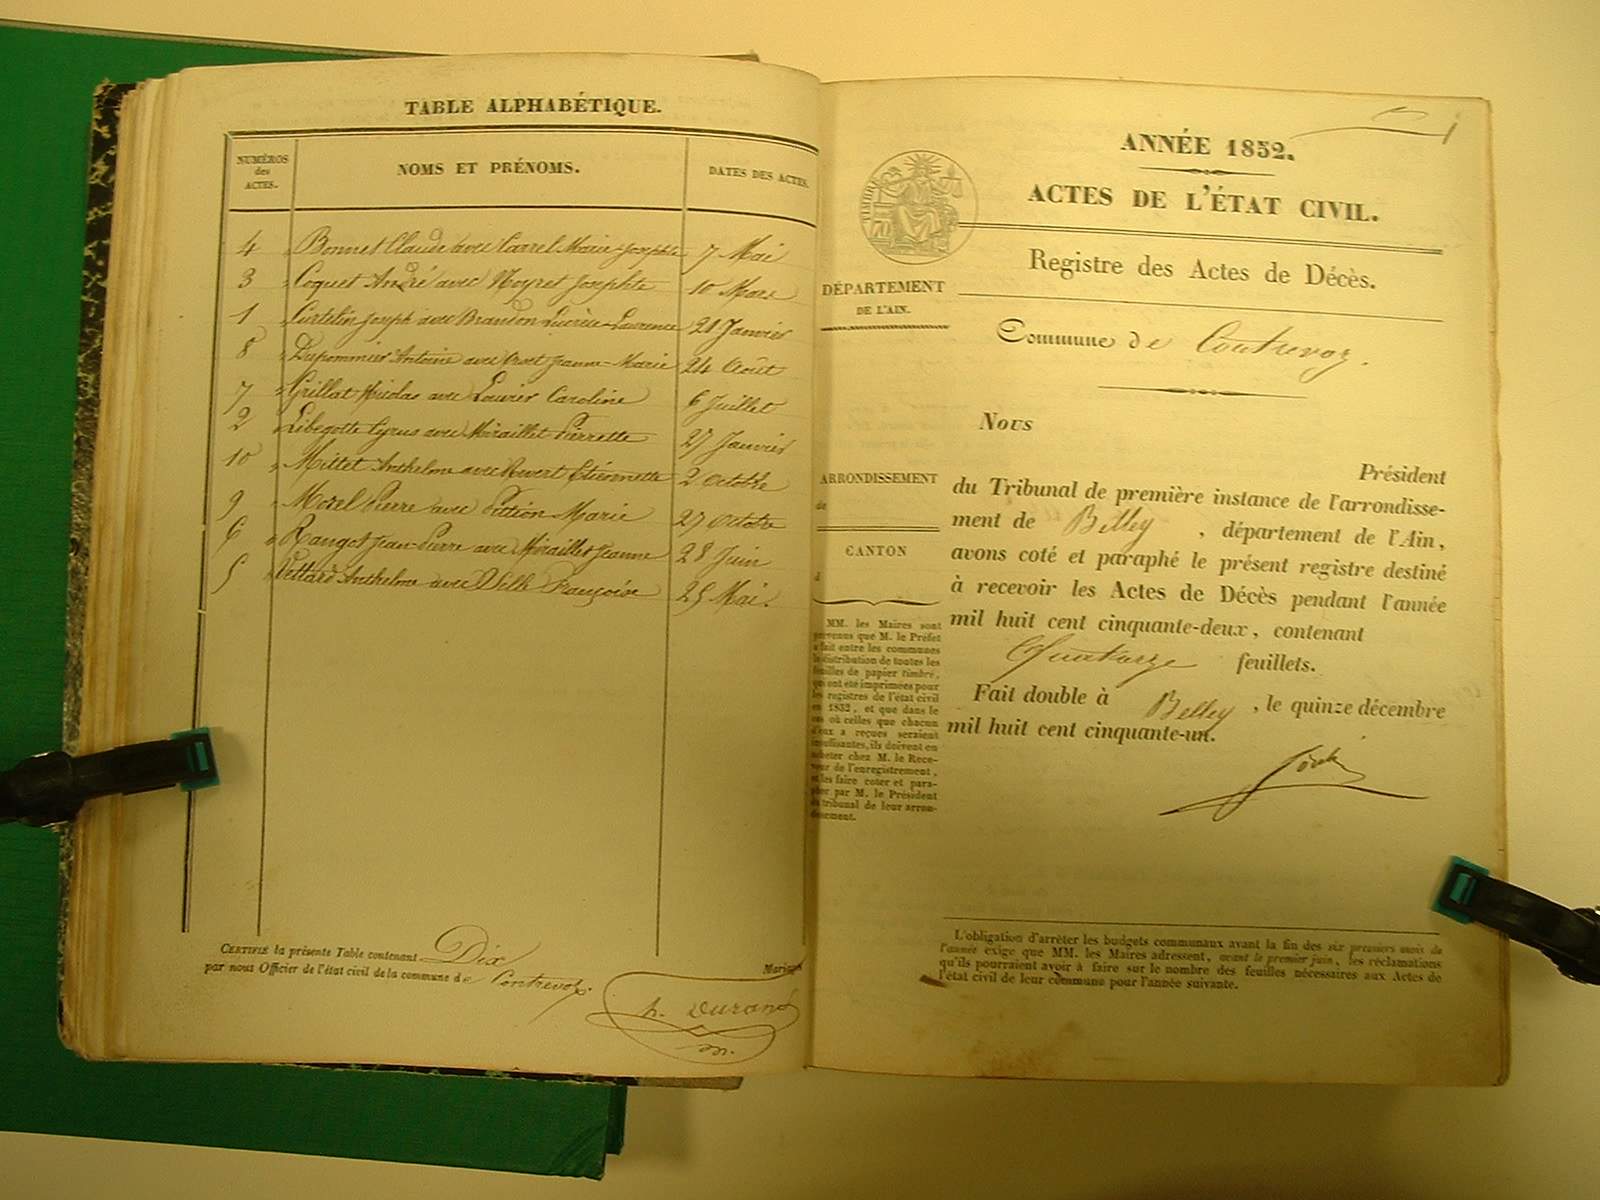 TABLE ALPHABÉTIQUE.
NUMÉROS
des
ACTES.
NOMS ET PRÉNOMS.
DATES DES ACTES.
4 Bonnet Claude avec Carrel Marie-Josephte 7 Mai
3 Coquet André avec Moyret Josephte 10 Mars
1 Curtelin Joseph avec Brandon Lucrèce-Laurence 21 Janvier
8 Dupommier Antoine avec Jeanne-Marie 24 Août
7 Grillat Nicolas avec Louvier Caroline 6 Juillet
2 Libegotte Cyrus avec Miraillet Pierrette 27 Janvier
10 Millet Anthelme avec Etiennette 2 Octobre
9 Morel Pierre avec Pittion Marie 27 Octobre
6 Rangot Jean-Pierre avec Miraillet Jeanne 28 Juin
5 Vettard Anthelme avec Françoise 25 Mai.
CERTIFIÉ la présente Table contenant Dix Mariages
par nous Officier de l'état civil de la commune de Contrevoz.
h. Durand
m.
ANNÉE 1852.
1
ACTES DE L'ÉTAT CIVIL.
TIMBRE
Registre des Actes de Décès.
DÉPARTEMENT
DE L'AIN.
Commune de Contrevoz.
NOUS
Président
du Tribunal de première instance de l'arrondisse-
ment de Belley, département de l'Ain,
avons coté et paraphé le présent registre destiné
à recevoir les Actes de Décès pendant l'année
mil huit cent cinquante-deux, contenant
Quatorze feuillets.
Fait double à Belley, le quinze décembre
mil huit cent cinquante-un.
ARRONDISSEMENT
de
CANTON
d
MM. les Maires sont
prévenus que M. le Préfet
a fait entre les communes
la distribution de toutes les
feuilles de papier timbré,
qui ont été imprimées pour
les registres de l'état civil
en 1852, et que dans le
cas où celles que chacun
d'eux a reçues seraient
insuffisantes, ils doivent en
acheter chez M. le Rece-
veur de l'enregistrement,
et les faire coter et para-
pher par M. le Président
du tribunal de leur arron-
dissement.
L'obligation d'arrêter les budgets communaux avant la fin des six premiers mois de
l'année exige que MM. les Maires adressent, avant le premier juin, les réclamations
qu'ils pourraient avoir à faire sur le nombre des feuilles nécessaires aux Actes de
l'état civil de leur commune pour l'année suivante.